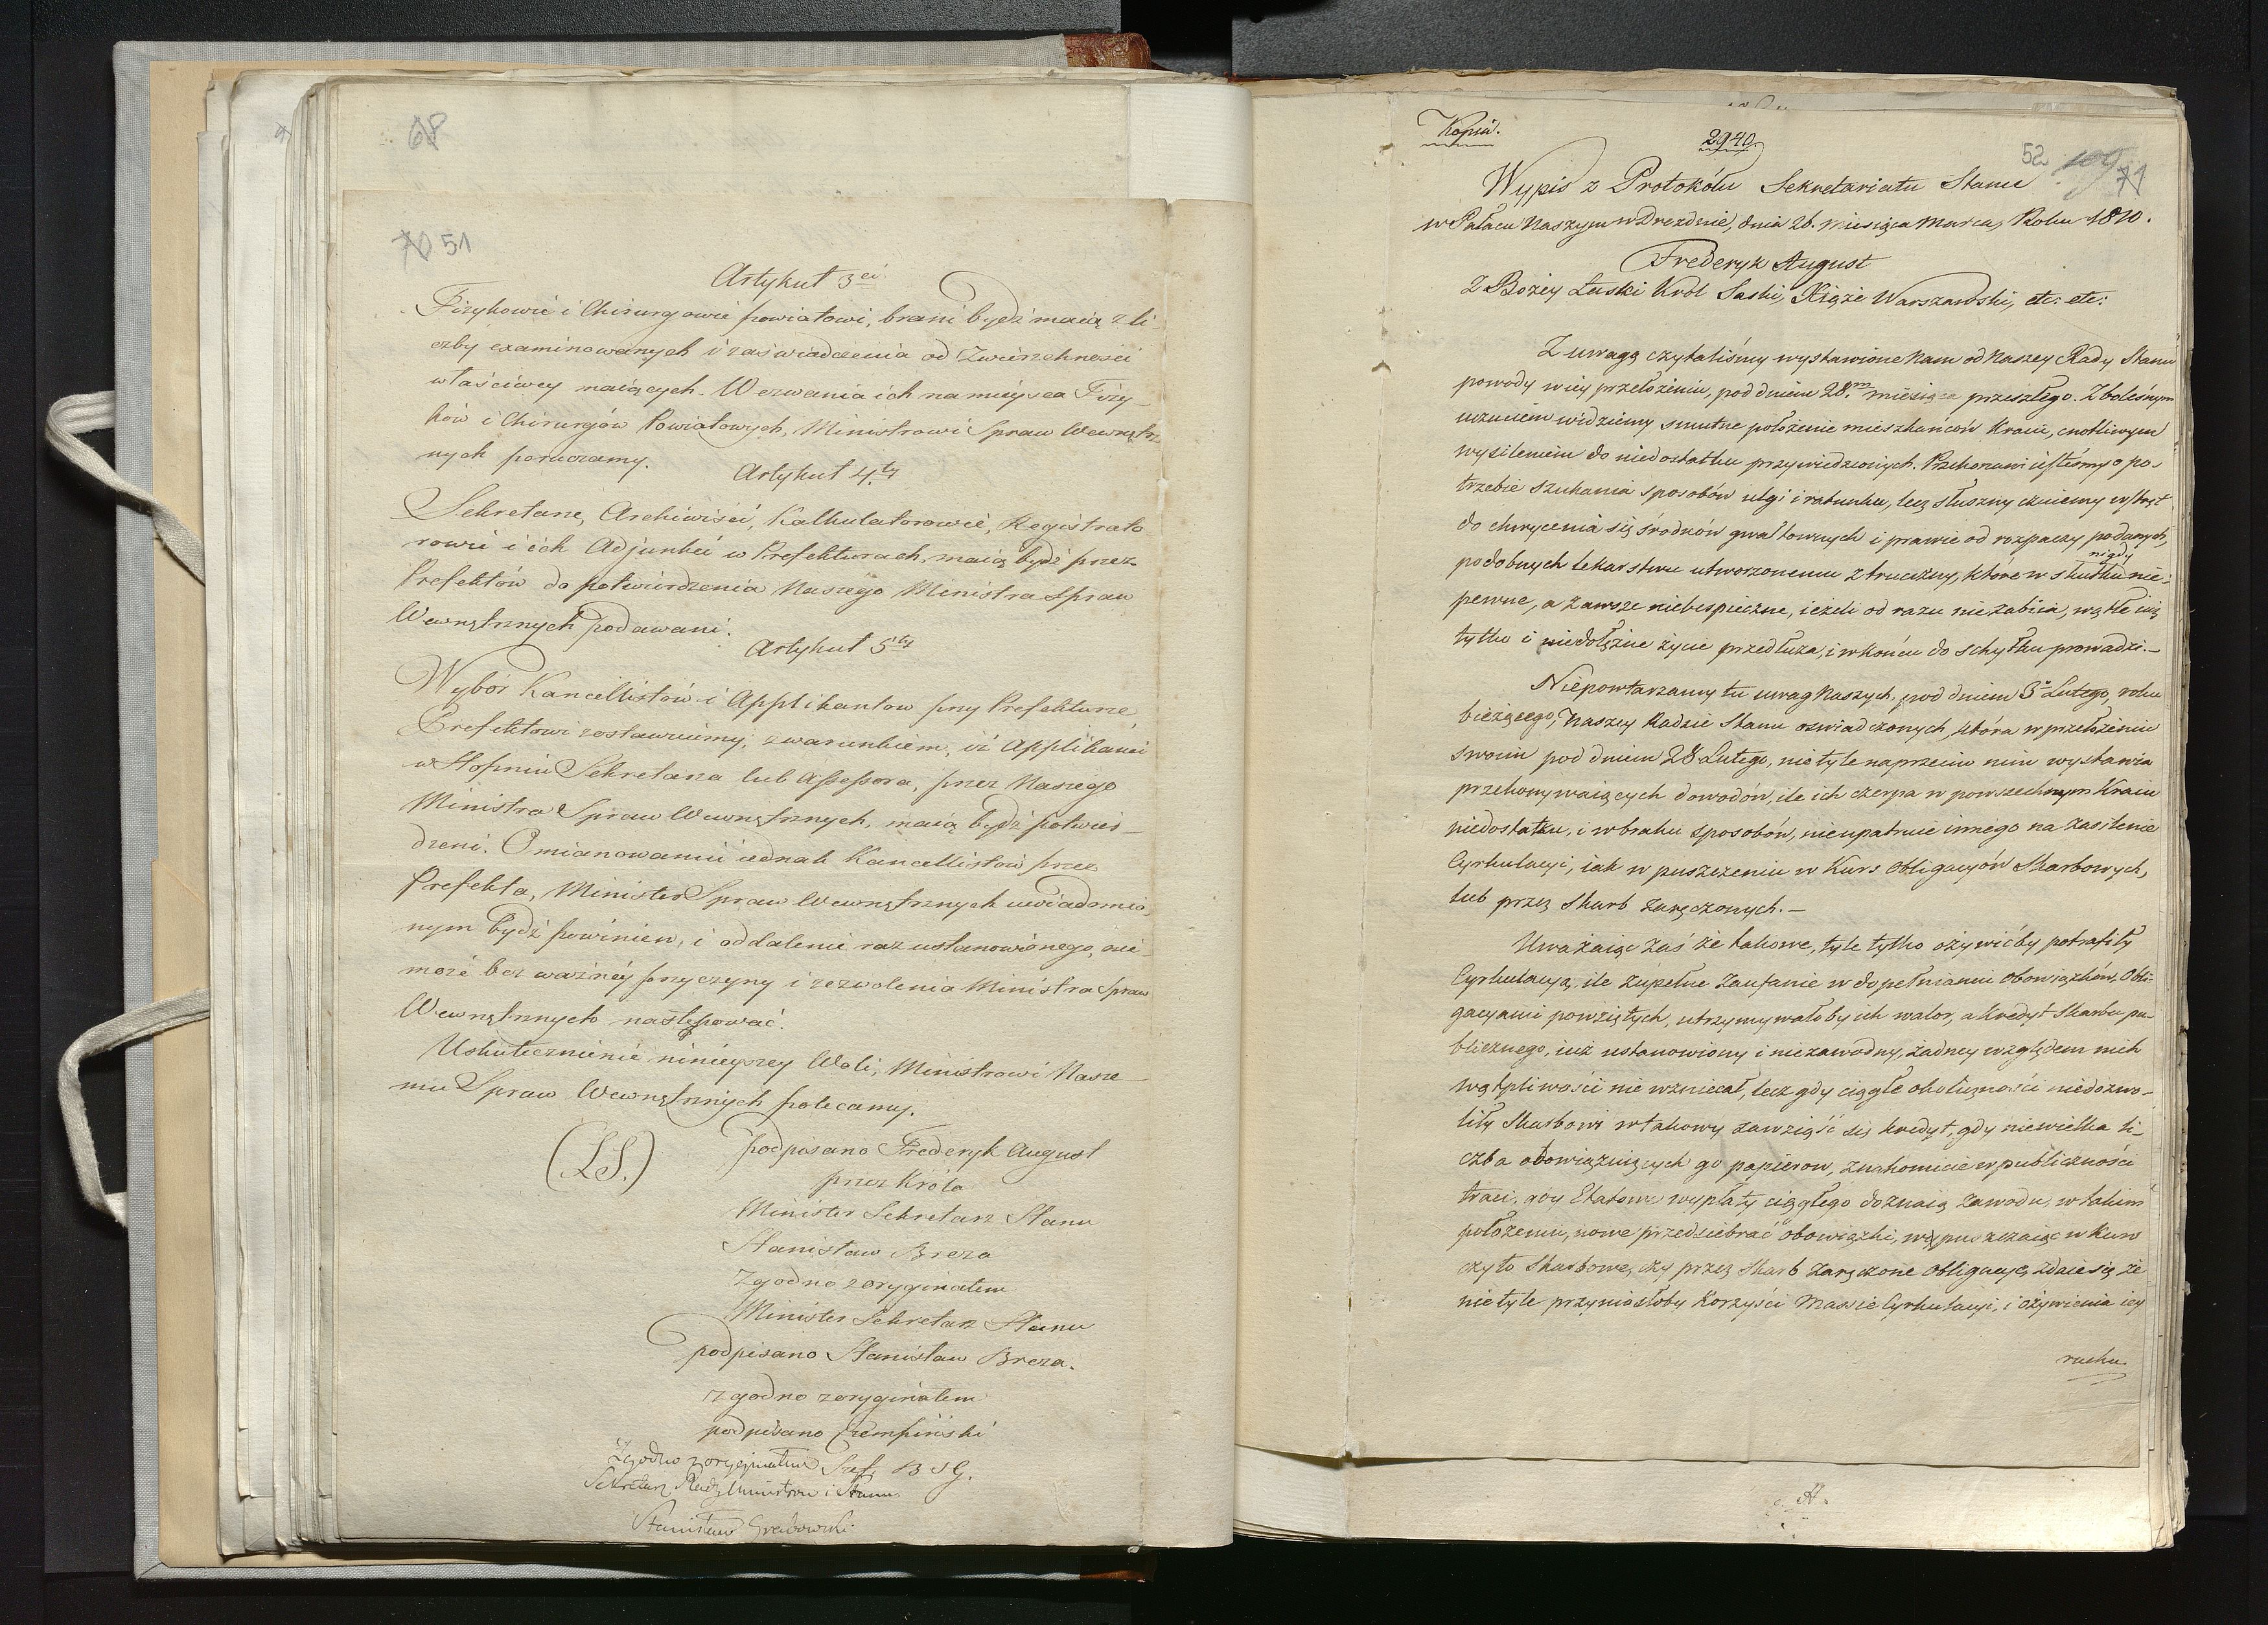 68
70 51
Artykuł 3ci
Fizykowie i Chirurgowie powiatowi, brani bydź maią z li-
czby examinowanych i zaświadczenia od Zwierzchności
właściwey maiących. Wezwania ich na mieysca Fizy-
ków i Chirurgów Powiatowych, Ministrowi Spraw Wewnętrz
nych poruczamy.
Artykuł 4ty
Sekretarze, Archiwiści, Kalkulatorowie, Registrato
rowie i ich Adjunkci w Prefekturach, maią bydź przez
Prefektów do potwierdzenia Naszego Ministra Spraw
Wewnętrznych podawani.
Artykuł 5ty
Wybór Kancellistów i Applikantow przy Prefekturze
Prefektowi zostawuiemy, z warunkiem, iż Applikanci
w Stopniu Sekretarza lub Assessora, przez Naszego
Ministra Spraw Wewnętrznych, maią bydź potwier-
dzeni. O mianowaniu iednak Kancellistów przez
Prefekta, Minister Spraw Wewnętrznych uwiadomio-
nym bydź powinien, i oddalenie raz ustanowionego, nie-
może bez ważney przyczyny i zezwolenia Ministra Spraw
Wewnętrznych następować.
Uskutecznienie ninieyszey Woli, Ministrowi Nasze-
mu Spraw Wewnętrznych polecamy.
(LS.) podpisano Frederyk August
przez Króla
Minister Sekretarz Stanu
Stanisław Breza
Zgodno z oryginałem
Minister Sekretarz Stanu
podpisano Stanisław Breza.
zgodno z oryginałem
podpisano Czempiński
Zgodno z oryginałem Szef B S G.
Sekretarz Rady Ministrow i Stanu
Stanisław Grabowski
Kopia.
2940.
52 109 71
Wypis z Protokółu Sekretariatu Stanu
w Pałacu Naszym w Dreznie, dnia 26. miesiąca Marca, Roku 1810.
Frederyk August
Z Bożey Łaski Król Saski, Xiąże Warszawski, etc: etc:
Z uwagą czytaliśmy wystawione Nam od Naszey Rady Stanu
powody w iey przełożeniu, pod dniem 28.m miesiąca przeszłego. Z bolesnym
uczuciem widziemy smutne położenie mieszkańców Kraiu, cnotliwym
wysileniem do niedostatku przywiedzionych. Przekonani iesteśmy o po-
trzebie szukania sposobów ulgi i ratunku, lecz słuszny czuiemy wstręt
do chwycenia się środków gwałtownych i prawie od rozpaczy podanych,
podobnych lekarstwu utworzonemu z trucizny, które w skutku nigdy nie-
pewne, a zawsze niebespieczne, ieżeli od razu nie zabiia, wątłe ią
tylko i niedołężne życie przedłuża, i w końcu do schyłku prowadzi.—
Niepowtarzamy tu uwag Naszych, pod dniem 3o Lutego, roku
bieżącego, Naszey Radzie Stanu oświadczonych, która w przełożeniu
swoim pod dniem 28 Lutego, nie tyle naprzeciw nim wystawia
przekonywaiących dowodów, ile ich czerpa w powszechnym Kraiu
niedostatku, i w braku sposobów, nieupatruie innego na zasilenie
Cyrkulacyi, iak w puszczeniu w Kurs Obligacyów Skarbowych,
lub przez Skarb zaręczonych.—
Uważaiąc zaś że takowe, tyle tylko ożywićby potrafiły
Cyrkulacyą, ile zupełne zaufanie w dopełnianiu obowiązków, Obli-
gacyami powziętych, utrzymywałoby ich walor, a kredyt Skarbu pu-
blicznego, iuż ustanowiony i niezawodny, żadney względem nich
wątpliwości nie wzniecał, lecz gdy ciągłe okoliczności niedozwo-
liły Skarbowi w takowy zawziąść się kredyt, gdy niewielka li-
czba obowiązuiących go papierow, znakomicie w publiczności
traci, gdy Etatowe wypłaty ciągłego doznaią zawodu, w takim
położeniu, nowe przedsiebrać obowiązki, wypuszczaiąc w Kurs
czy to Skarbowe, czy przez Skarb zaręczone Obligacye, zdaie się że
nie tyle przyniosłoby korzyści Massie Cyrkulacyi, i ożywienia iey
ruchu.